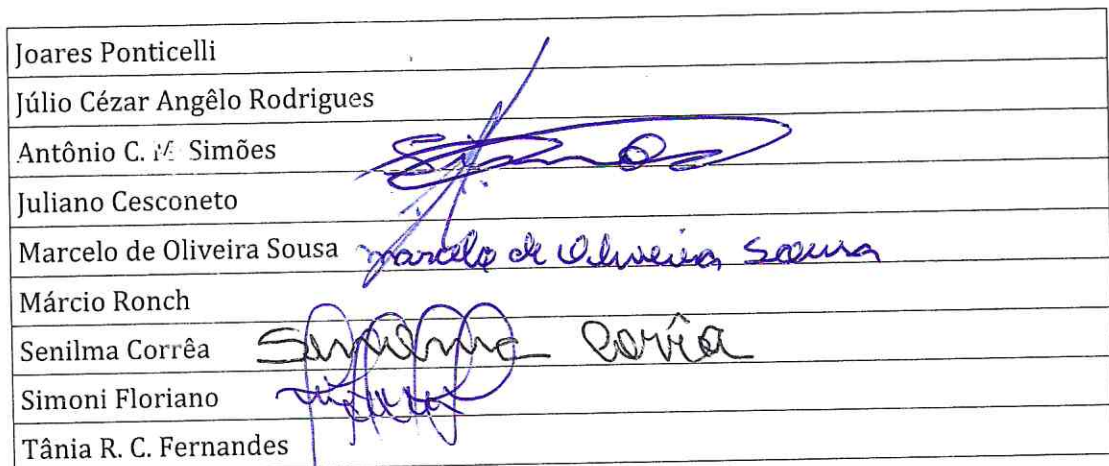 Joares Ponticelli
Júlio Cézar Angêlo Rodrigues
Antônio C. M Simões
Juliano Cesconeto
Marcelo de Oliveira Sousa Marcelo de Oliveira Sousa
Márcio Ronch
Senilma Corrêa Senilma Corrêa
Simoni Floriano
Tânia R. C. Fernandes